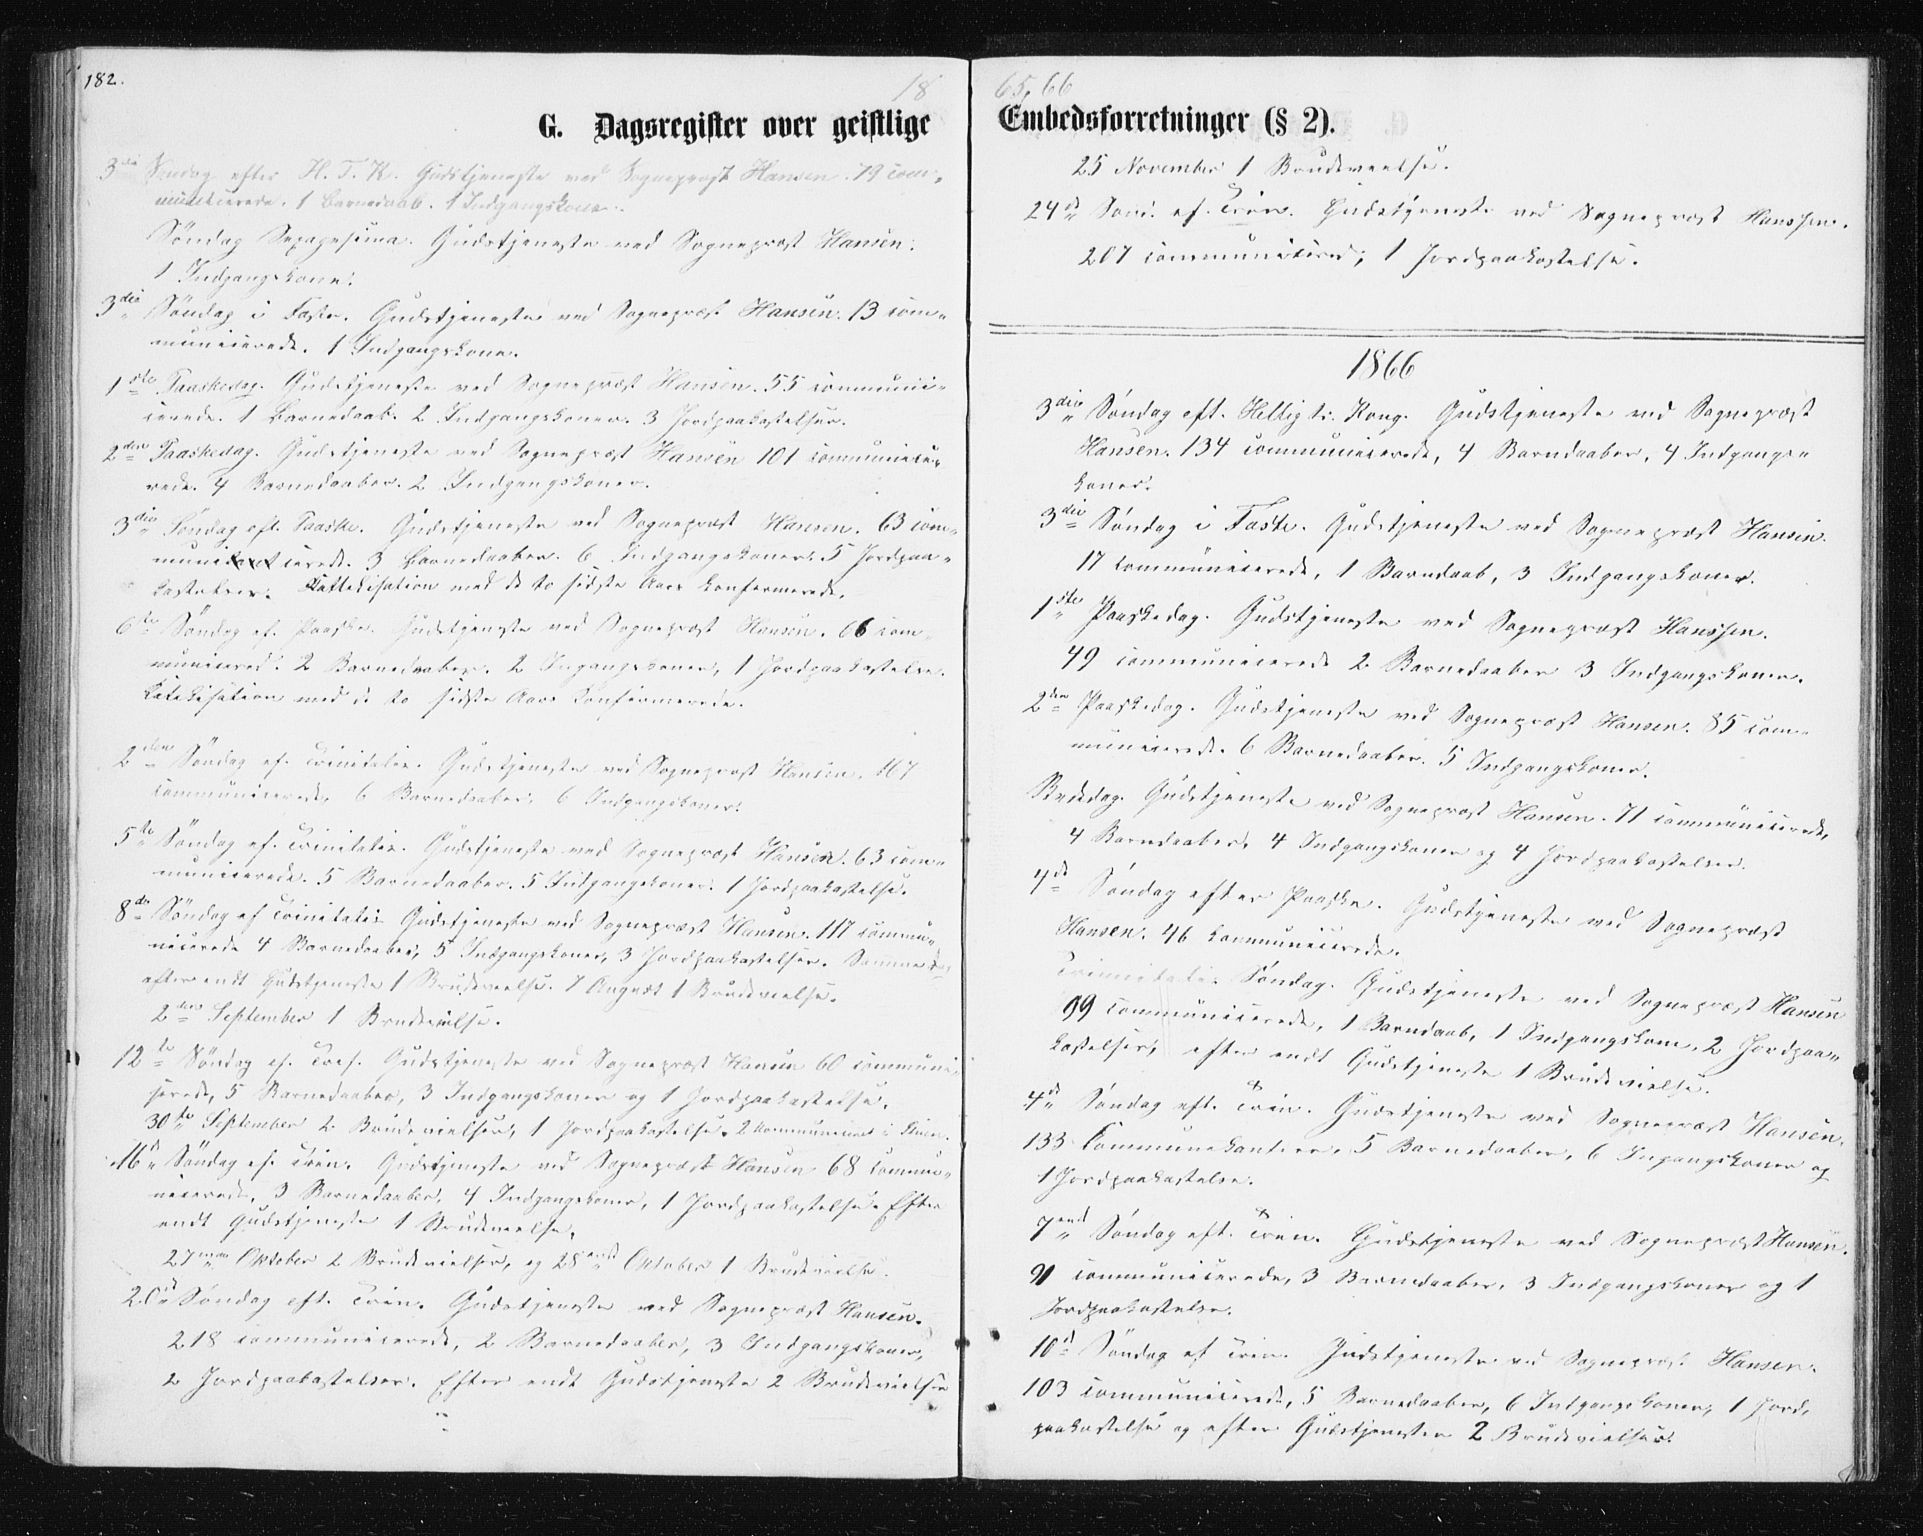 182.
18
65, 66
G. Dagsregister over geistlige
Embedsforretninger (§ 2).
3die Søndag efter H. T. K. Gudstjeneste ved Sognepræst Hansen. 79 com-
municerede. 1 Barnedaab. 1 Indgangskone.
Søndag Sexagesima. Gudstjeneste ved Sognepræst Hansen.
1 Indgangskone.
3die Søndag i Faste. Gudstjeneste ved Sognepræst Hansen. 13 com-
municerede. 1 Indgangskone.
1ste Paaskedag. Gudstjeneste ved Sognepræst Hansen. 55 communi-
cerede. 1 Barnedaab. 2 Indgangskoner. 3 Jordpaakastelser.
2den Paaskedag. Gudstjeneste ved Sognepræst Hansen 101 communice-
rede. 4 Barnedaaber. 2 Indgangskoner.
3die Søndag eft. Paaske. Gudstjeneste ved Sognepræst Hansen. 63 com-
municerede. 3 Barnedaaber. 6 Indgangskoner. 5 Jordpaa-
kastelser. Kattekisation med de to sidste Aars Konfermerede.
6te Søndag ef. Paaske. Gudstjeneste ved Sognepræst Hansen. 66 com-
municered. 2 Barnedaaber. 2 Ingangskoner, 1 Jordpaakastelse.
Katekisation med de to sidste Aars Konfirmerede.
2den Søndag ef. Trinitatis. Gudstjeneste ved Sognepræst Hansen. 167
communicerede, 6 Barnedaaber, 6 Indgangskoner.
5te Søndag ef. Trinitatis. Gudstjeneste ved Sognepræst Hansen. 63 com-
municerede. 5 Barnedaaber. 5 Indgangskoner. 1 Jordpaakastelse.
8de Søndag ef Trinitatis Gudstjeneste ved Sognepræst Hansen. 117 commu-
nicerede 4 Barnedaaber, 5 Indgangskoner, 3 Jordpaakastelser. Samme Dag
efter endt Gudstjeneste 1 Brudevielse. 7 August 1 Brudevielse.
2den September 1 Brudevielse.
12te Søndag ef. Tref. Gudstjeneste ved Sognepræst Hansen 60 communi-
serede, 5 Barnedaaber, 3 Indgangskoner og 1 Jordpaakastelse.
30te September 2 Brudevielser, 1 Jordpaakastelse. 2 kommuniceret i
16de Søndag ef. Trin. Gudstjeneste ved Sognepræst Hansen 68 commu-
nicerede, 3 Barnedaaber, 4 Indgangskoner, 1 Jordpaakastelse. Efter
endt Gudstjeneste 1 Brudevielse.
27 Oktober 2 Brudevielser, og 28 Oktober 1 Brudevielse.
20de Søndag eft. Trin. Gudstjeneste ved Sognepræst Hansen.
218 communicerede, 2 Barnedaaber, 3 Indgangskoner,
2 Jordpaakastelser. Efter endt Gudstjeneste 2 Brudevielser
25 November 1 Brudevielse.
24de Sønd. ef. Trin. Gudstjeneste ved Sognepræst Hanssen.
207 communicered; 1 Jordpaakastelse.
1866
3die Søndag eft. Hellig tr. Kong. Gudstjeneste ved Sognepræst
Hansen. 134 communicerede, 4 Barndaaber, 4 Indgangs-
koner.
3die Søndag i Faste. Gudstjeneste ved Sognepræst Hansen.
17 communicerede, 1 Barndaab, 3 Indgangskoner.
1ste Paaskedag. Gudstjeneste ved Sognepræst Hanssen.
49 communicerede 2 Barnedaaber 3 Indgangskoner.
2den Paaskedag. Gudstjeneste ved Sognepræst Hansen. 85 com-
municerede. 6 Barnedaaber. 5 Indgangskoner.
Bededag. Gudstjeneste ved Sognepræst Hansen. 71 communicerede,
4 Barndaaber, 4 Indgangskoner og 4 Jordpaakastelser.
4de Søndag efter Paaske. Gudstjeneste ved Sognepræst
Hansen. 46 kommunicerede.
Trinnitatis Søndag. Gudstjeneste ved Sognepræst Hansen
99 communicerede, 1 Barndaab, 1 Indgangskone, 2 Jordpaa-
kastelser, efter endt Gudstjeneste 1 Brudevielse.
4de Søndag eft. Trin. Gudstjeneste ved Sognepræst Hansen.
133 Kommunekantere, 5 Barnedaaber, 6 Ingangskoner og
1 Jordpaakastelse.
7end Søndag eft. Trin. Gudstjeneste ved Sognepræst Hansen.
91 communicerede, 3 Barnedaaber, 3 Indgangskoner og 1
Jordpaakastelse.
10d Søndag ef Trin. Gudstjeneste ved Sognepræst Hansen.
103 communicerede, 5 Barnedaaber, 6 Indgangskoner, 1 Jord-
paakastelse og efter Gudstjenesten 2 Brudevielser.